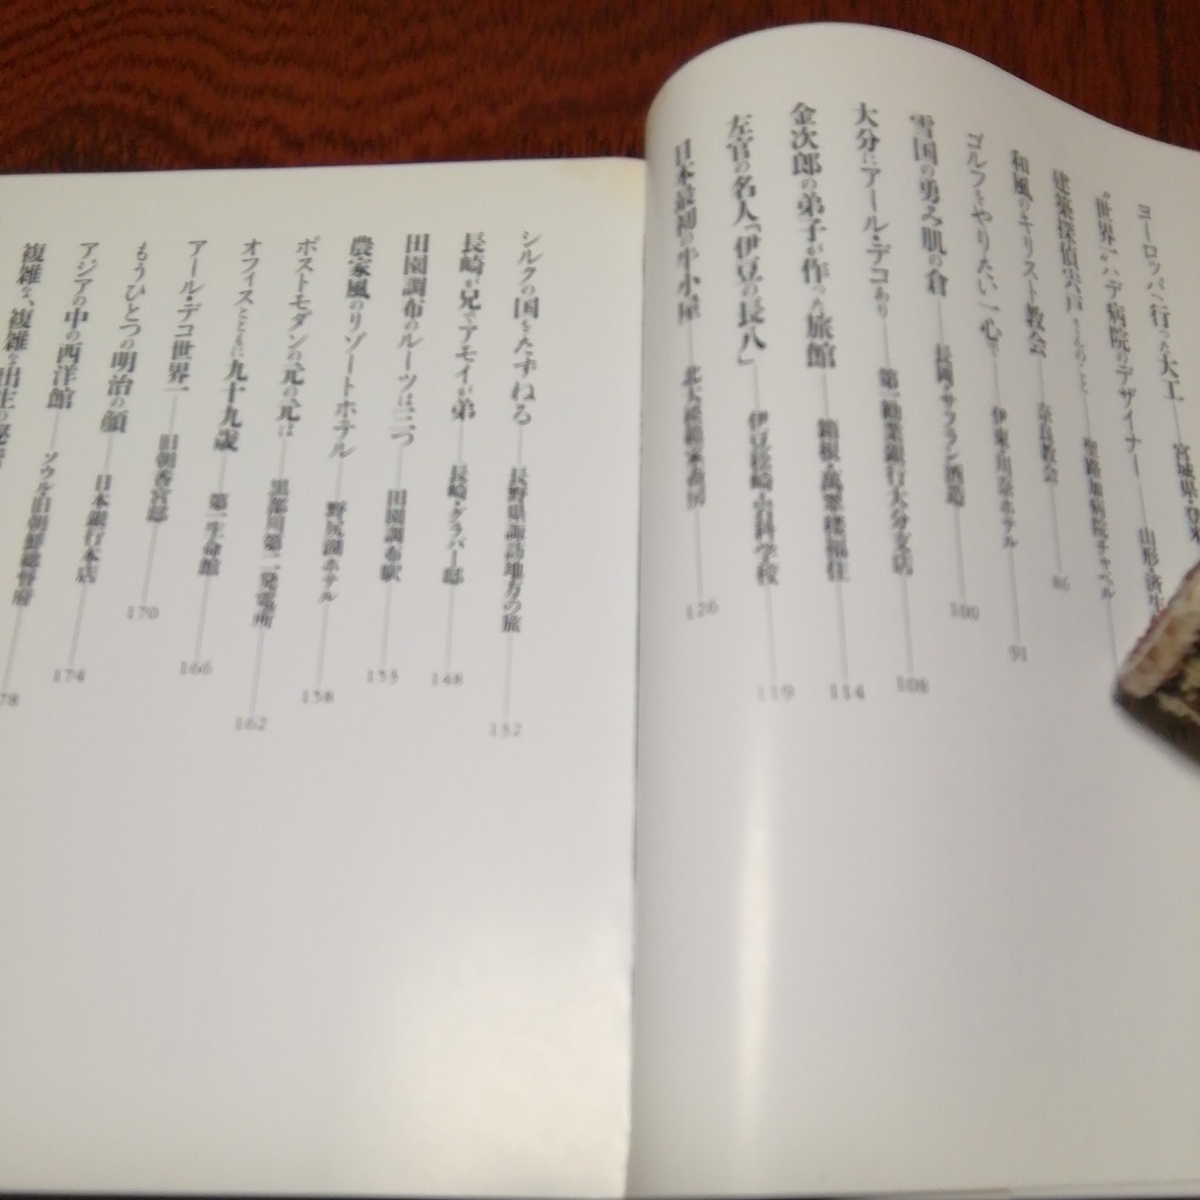 ヨーロッパへ行った大工――宮城県・登米
“世界一”ハデ病院のデザイナー――山形・済生
建築探偵宍戸さんのこと――聖路加病院チャペル
和風のキリスト教会――奈良教会――86
ゴルフをやりたい一心で――伊東・川奈ホテル――91
雪国の勇み肌の倉――長岡・サフラン酒造――100
大分にアール・デコあり――第一勧業銀行大分支店――108
金次郎の弟子が作った旅館――箱根・萬翠楼福住――114
左官の名人「伊豆の長八」――伊豆松崎・岩科学校――119
日本最初の牛小屋――北大模範家畜房――126
シルクの国をたずねる――長野県諏訪地方の旅――132
長崎が兄でアモイが弟――長崎・グラバー邸――148
田園調布のルーツは三つ――田園調布駅――153
農家風のリゾートホテル――野尻湖ホテル――158
ポストモダンの元の元は――黒部川第二発電所――162
オフィスとともに九十九歳――第一生命館――166
アール・デコ世界一――旧朝香宮邸――170
もうひとつの明治の顔――日本銀行本店――174
アジアの中の西洋館――ソウル旧朝鮮総督府――78
複雑な、複雑な出生の秘密